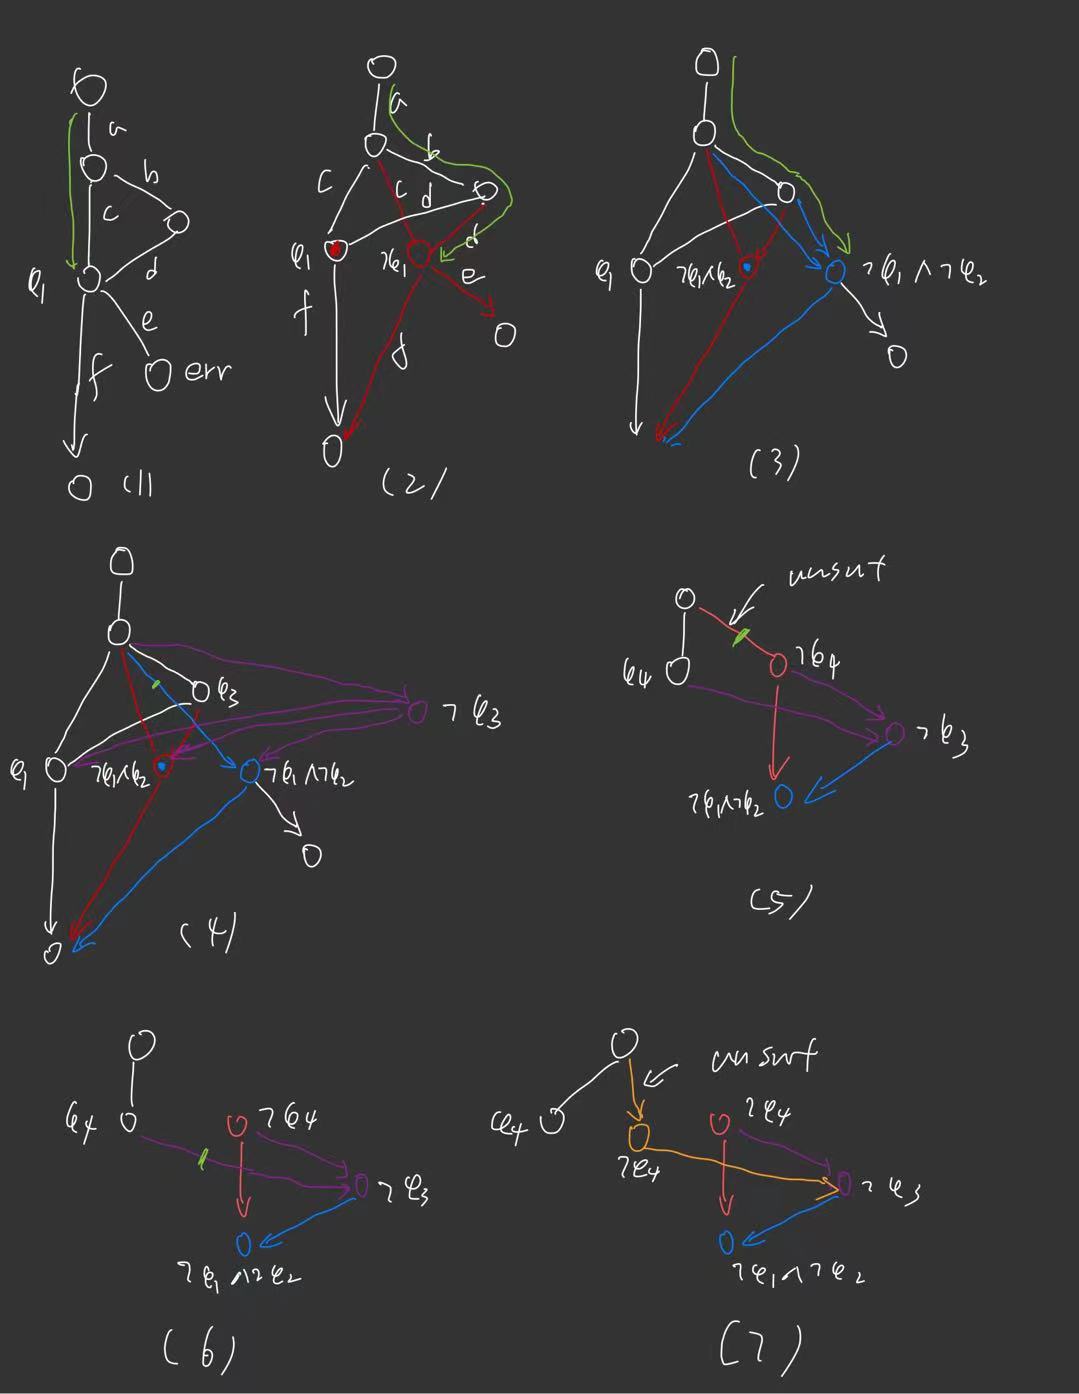 a
b
c
d
φ₁
e
f
err
(1)
a
b
c
c
d
d
φ₁
¬φ₁
e
f
f
(2)
φ₁
¬φ₁∧φ₂
¬φ₁∧¬φ₂
(3)
φ₃
¬φ₃
φ₁
¬φ₁∧φ₂
¬φ₁∧¬φ₂
(4)
unsat
φ₄
¬φ₄
¬φ₃
¬φ₁∧¬φ₂
(5)
φ₄
¬φ₄
¬φ₃
¬φ₁∧¬φ₂
(6)
unsat
φ₄
¬φ₄
¬φ₄
¬φ₃
¬φ₁∧¬φ₂
(7)